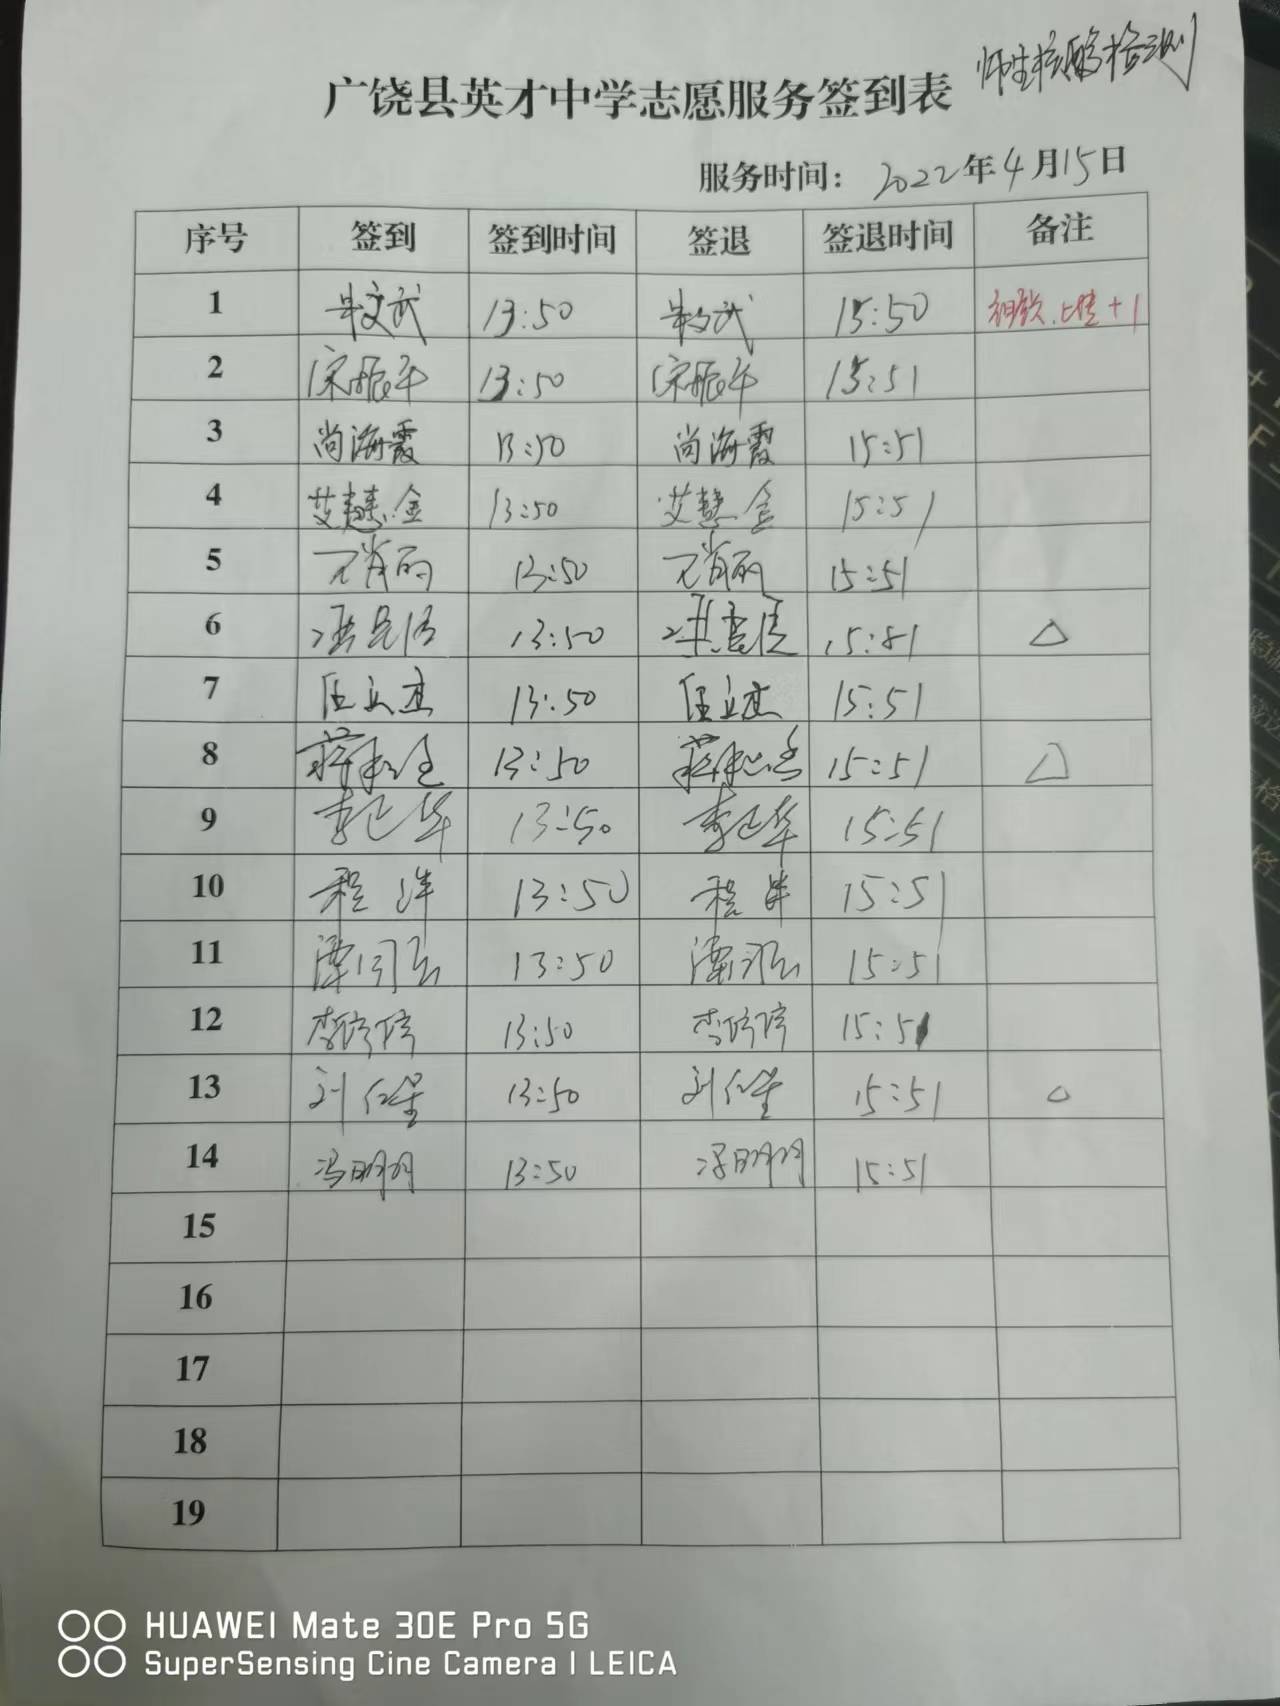 师生核酸检测
广饶县英才中学志愿服务签到表
服务时间：2022年4月15日
序号 签到 签到时间 签退 签退时间 备注
1 文武 13:50 文武 15:50 +1
2 宋振午 13:50 宋振午 15:51
3 尚海霞 13:50 尚海霞 15:51
4 艾慧金 13:50 艾慧金 15:51
5 13:50 15:51
6 13:50 15:51 △
7 13:50 15:51
8 蒋 13:50 蒋 15:51 △
9 李 华 13:50 李 华 15:51
10 程洋 13:50 程洋 15:51
11 谭 13:50 谭 15:51
12 李婷婷 13:50 李婷婷 15:51
13 刘仁星 13:50 刘仁星 15:51 △
14 冯明明 13:50 冯明明 15:51
15
16
17
18
19
HUAWEI Mate 30E Pro 5G
SuperSensing Cine Camera | LEICA